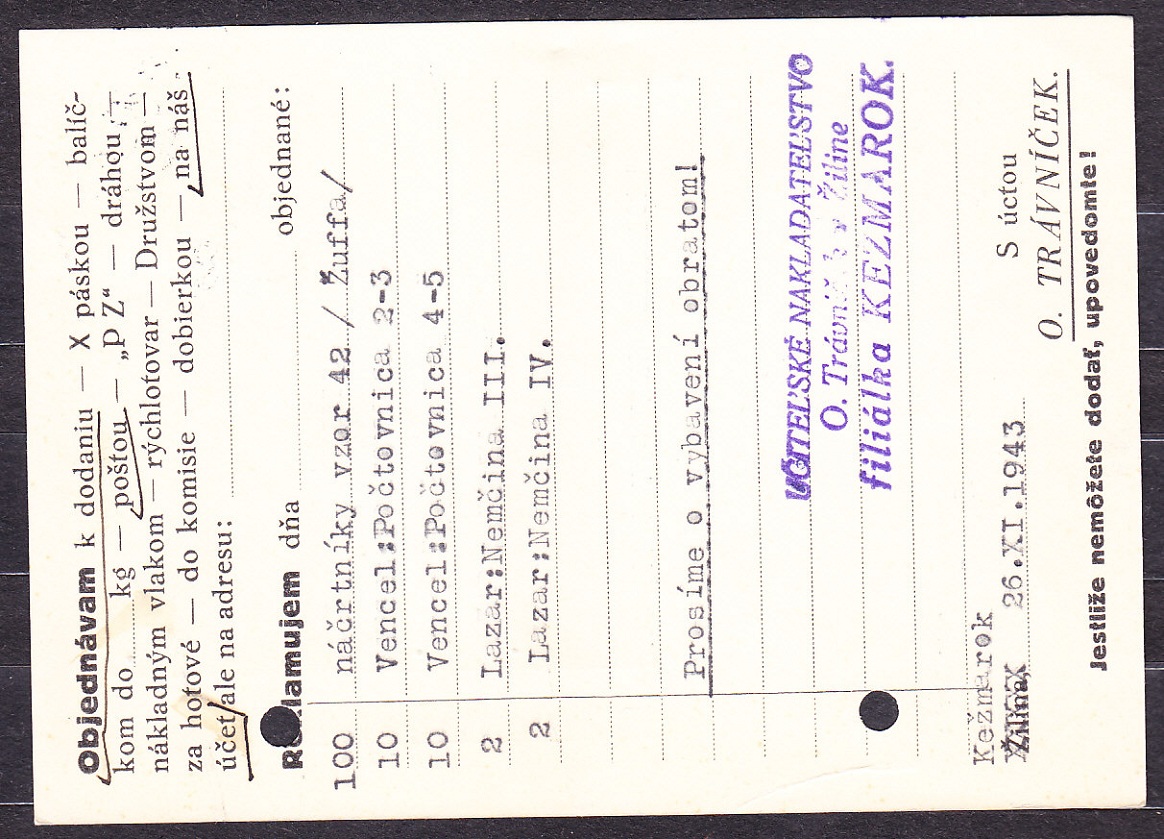 Objednávam k dodaniu — X páskou — balíč-
kom do kg — poštou — „P Z“ — dráhou —
nákladným vlakom — rýchlotovar — Družstvom —
za hotové — do komisie — dobierkou — na náš
účet ale na adresu:
Reklamujem dňa objednané:
100 náčrtníky vzor 42 / Žuffa/
10 Vencel:Počtovnica 2-3
10 Vencel:Počtovnica 4-5
2 Lazar:Nemčina III.
2 Lazar:Nemčina IV.
Prosíme o vybavení obratom!
UČITEĽSKÉ NAKLADATEĽSTVO
O. Trávníček v Žiline
filiálka KEŽMAROK.
Kežmarok
Žilina, 26.XI.1943
S úctou
O. TRÁVNÍČEK.
Jestliže nemôžete dodať, upovedomte!